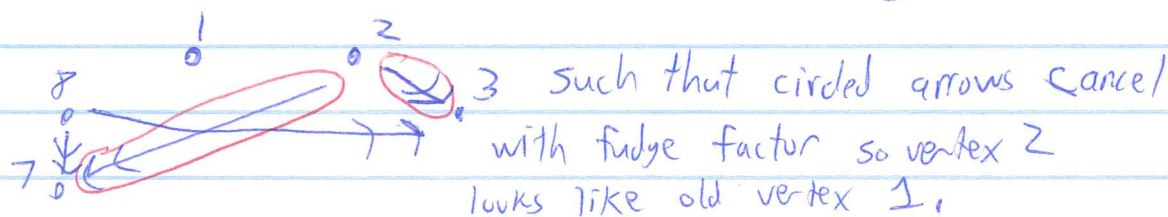 1 2
8 3 such that circled arrows cancel
with fudge factor so vertex 2
7 looks like old vertex 1.